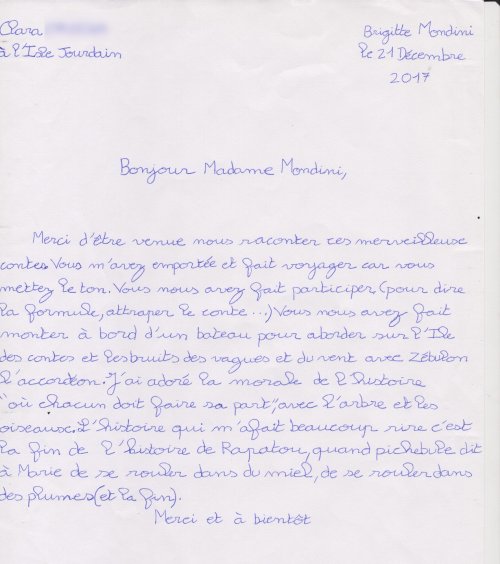 Clara
Brigitte Mondini
à l'Isle Jourdain
le 21 Décembre
2017
Bonjour Madame Mondini,
Merci d'être venue nous raconter ces merveilleuse
contes. Vous m'avez emportée et fait voyager car vous
mettez le ton. Vous nous avez fait participer, (pour dire
la formule, attraper le conte ...) Vous nous avez fait
monter à bord d'un bateau pour aborder sur l'Ile
des contes et les bruits des vagues et du vent avec Zébulon
l'accordéon. J'ai adoré la morale de l'histoire
"où chacun doit faire sa part", avec l'arbre et les
oiseaux. L'histoire qui m'a fait beaucoup rire c'est
la fin de l'histoire de Rapatou, quand pichebule dit
à Marie de se rouler dans du miel, de se rouler dans
des plumes (et la fin).
Merci et à bientôt